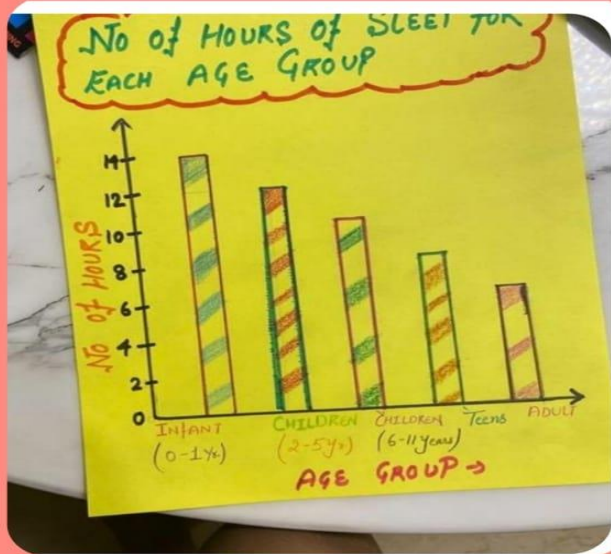 No of HOURS of SLEEP FOR
EACH AGE GROUP
No of HOURS
14
12
10
8
6
4
2
0
INFANT
(0-1 Yr.)
CHILDREN
(2-5 yr)
CHILDREN
(6-11 years)
Teens
ADULT
AGE GROUP →